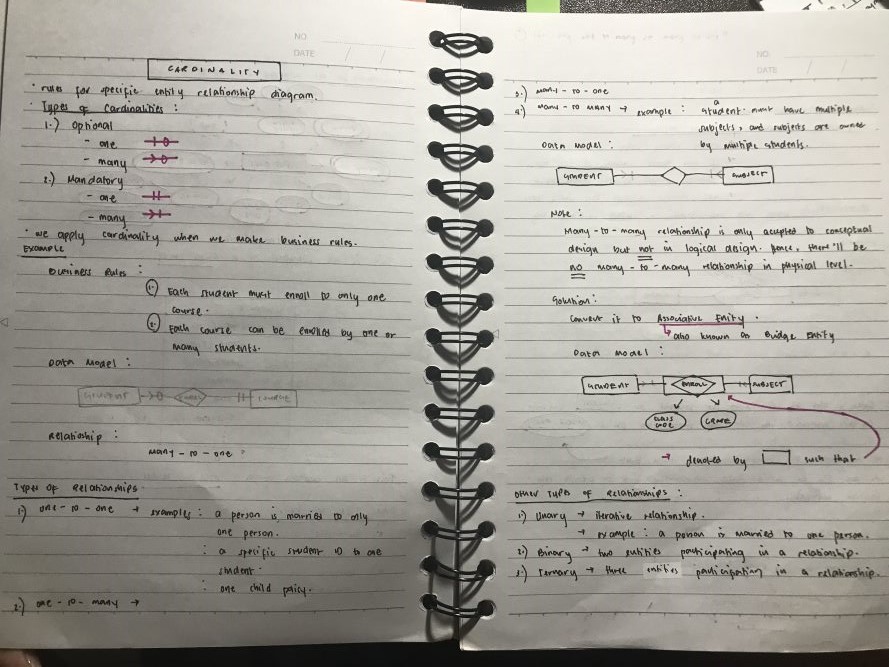 NO
DATE / /
CARDINALITY
• rules for specific entity relationship diagram.
Types of Cardinalities :
1.) Optional
- one
- many
2.) Mandatory
- one
- many
• we apply cardinality when we make business rules.
Example
Business Rules :
1. Each student must enroll to only one
course.
2. Each course can be enrolled by one or
many students.
Data Model :
STUDENT COURSE
Relatioship :
many - to - one
Types of Relationships
1.) one - to - one → examples : a person is married to only
one person.
: a specific student ID to one
student.
: one child policy.
2.) one - to - many →
NO
DATE / /
3.) many - to - one
4.) many - to many → example : a student must have multiple
subjects, and subjects are owned
by multiple students.
Data Model :
STUDENT SUBJECT
Note :
Many - to - many relationship is only accepted to conceptual
design but not in logical design. Hence, there'll be
no many - to - many relationship in physical level.
Solution :
Convert it to Associative Enity .
↳ also known as Bridge Entity
Data Model :
STUDENT ENROLL SUBJECT
CLASS CODE GRADE
→ denoted by such that
Other Types of Relationships :
1.) Unary → iterative relationship.
→ example : a person is married to one person.
2.) Binary → two entities participating in a relationship.
3.) Ternary → three entities participating in a relationship.